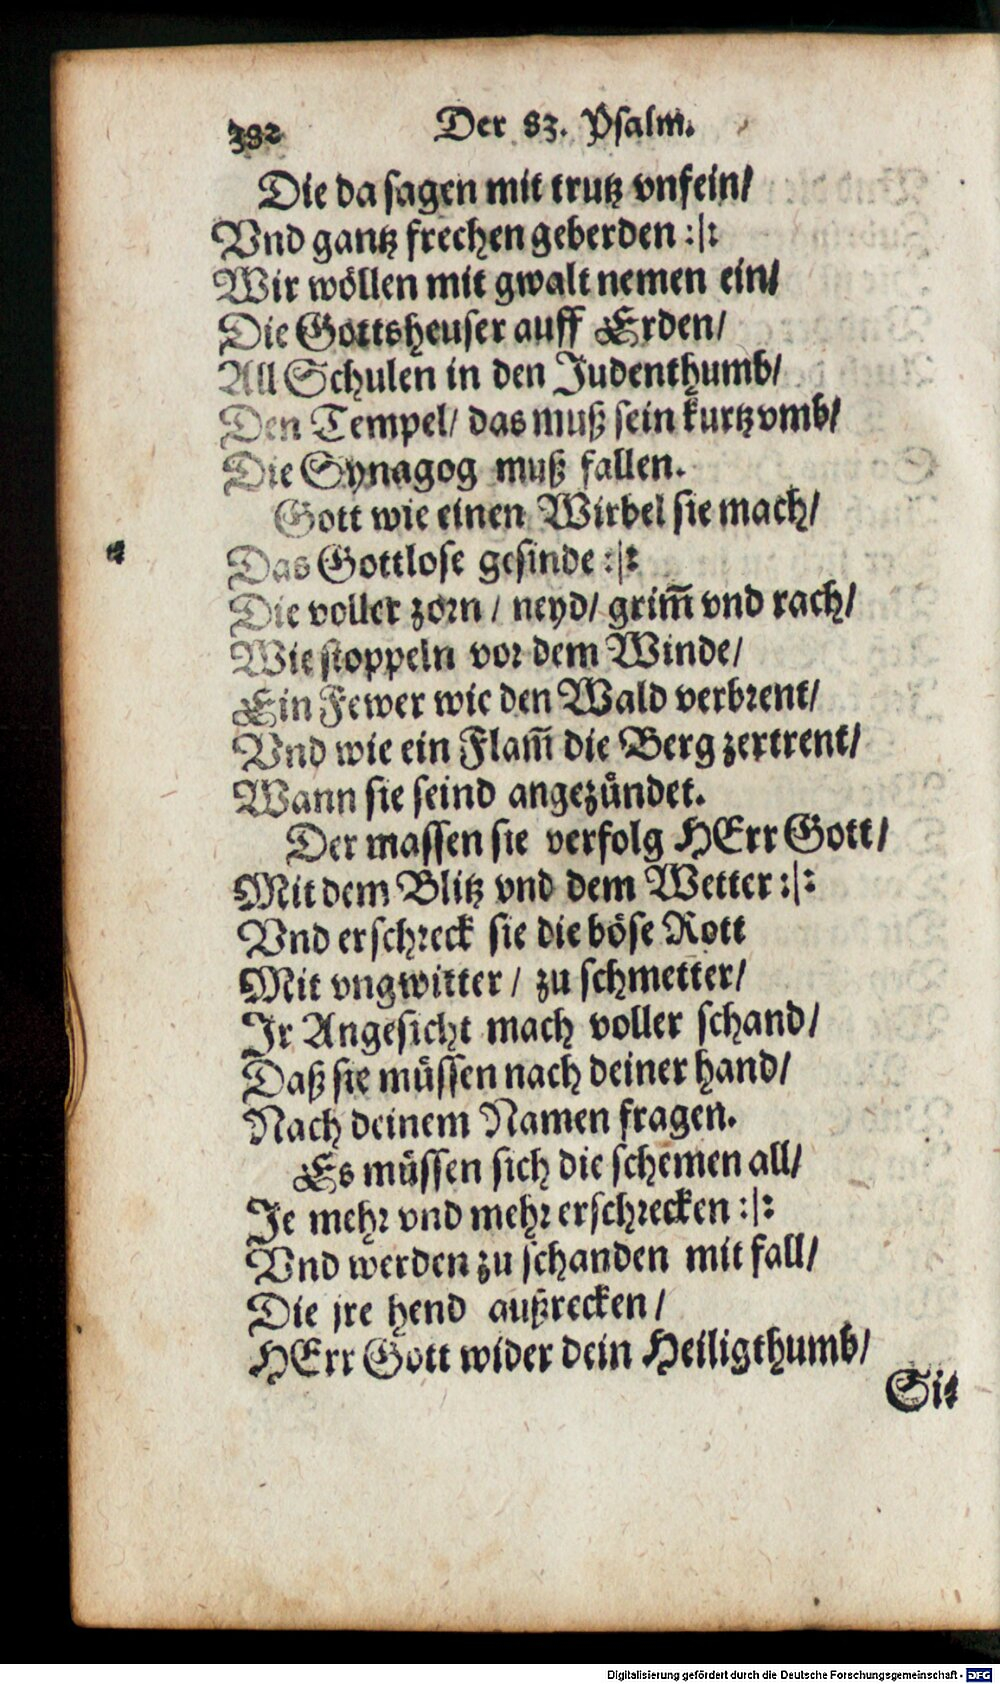 382
Der 83. Psalm.
Die da sagen mit trutz vnfein/
Vnd gantz frechen geberden :|:
Wir wöllen mit gwalt nemen ein/
Die Gottsheuser auff Erden/
All Schulen in den Judenthumb/
Den Tempel/ das muß sein kurtz vmb/
Die Synagog muß fallen.
Gott wie einen Wirbel sie mach/
Das Gottlose gesinde :|:
Die voller zorn / neyd/ grim̄ vnd rach/
Wie stoppeln vor dem Winde/
Ein Fewer wie den Wald verbrent/
Vnd wie ein Flam̄ die Berg zertrent/
Wann sie seind angezündet.
Der massen sie verfolg HErr Gott/
Mit dem Blitz vnd dem Wetter :|:
Vnd erschreck sie die böse Rott
Mit vngwitter / zu schmetter/
Ir Angesicht mach voller schand/
Daß sie müssen nach deiner hand/
Nach deinem Namen fragen.
Es müssen sich die schemen all/
Je mehr vnd mehr erschrecken :|:
Vnd werden zu schanden mit fall/
Die jre hend außrecken /
HErr Gott wider dein Heiligthumb/
Sie
Digitalisierung gefördert durch die Deutsche Forschungsgemeinschaft - DFG